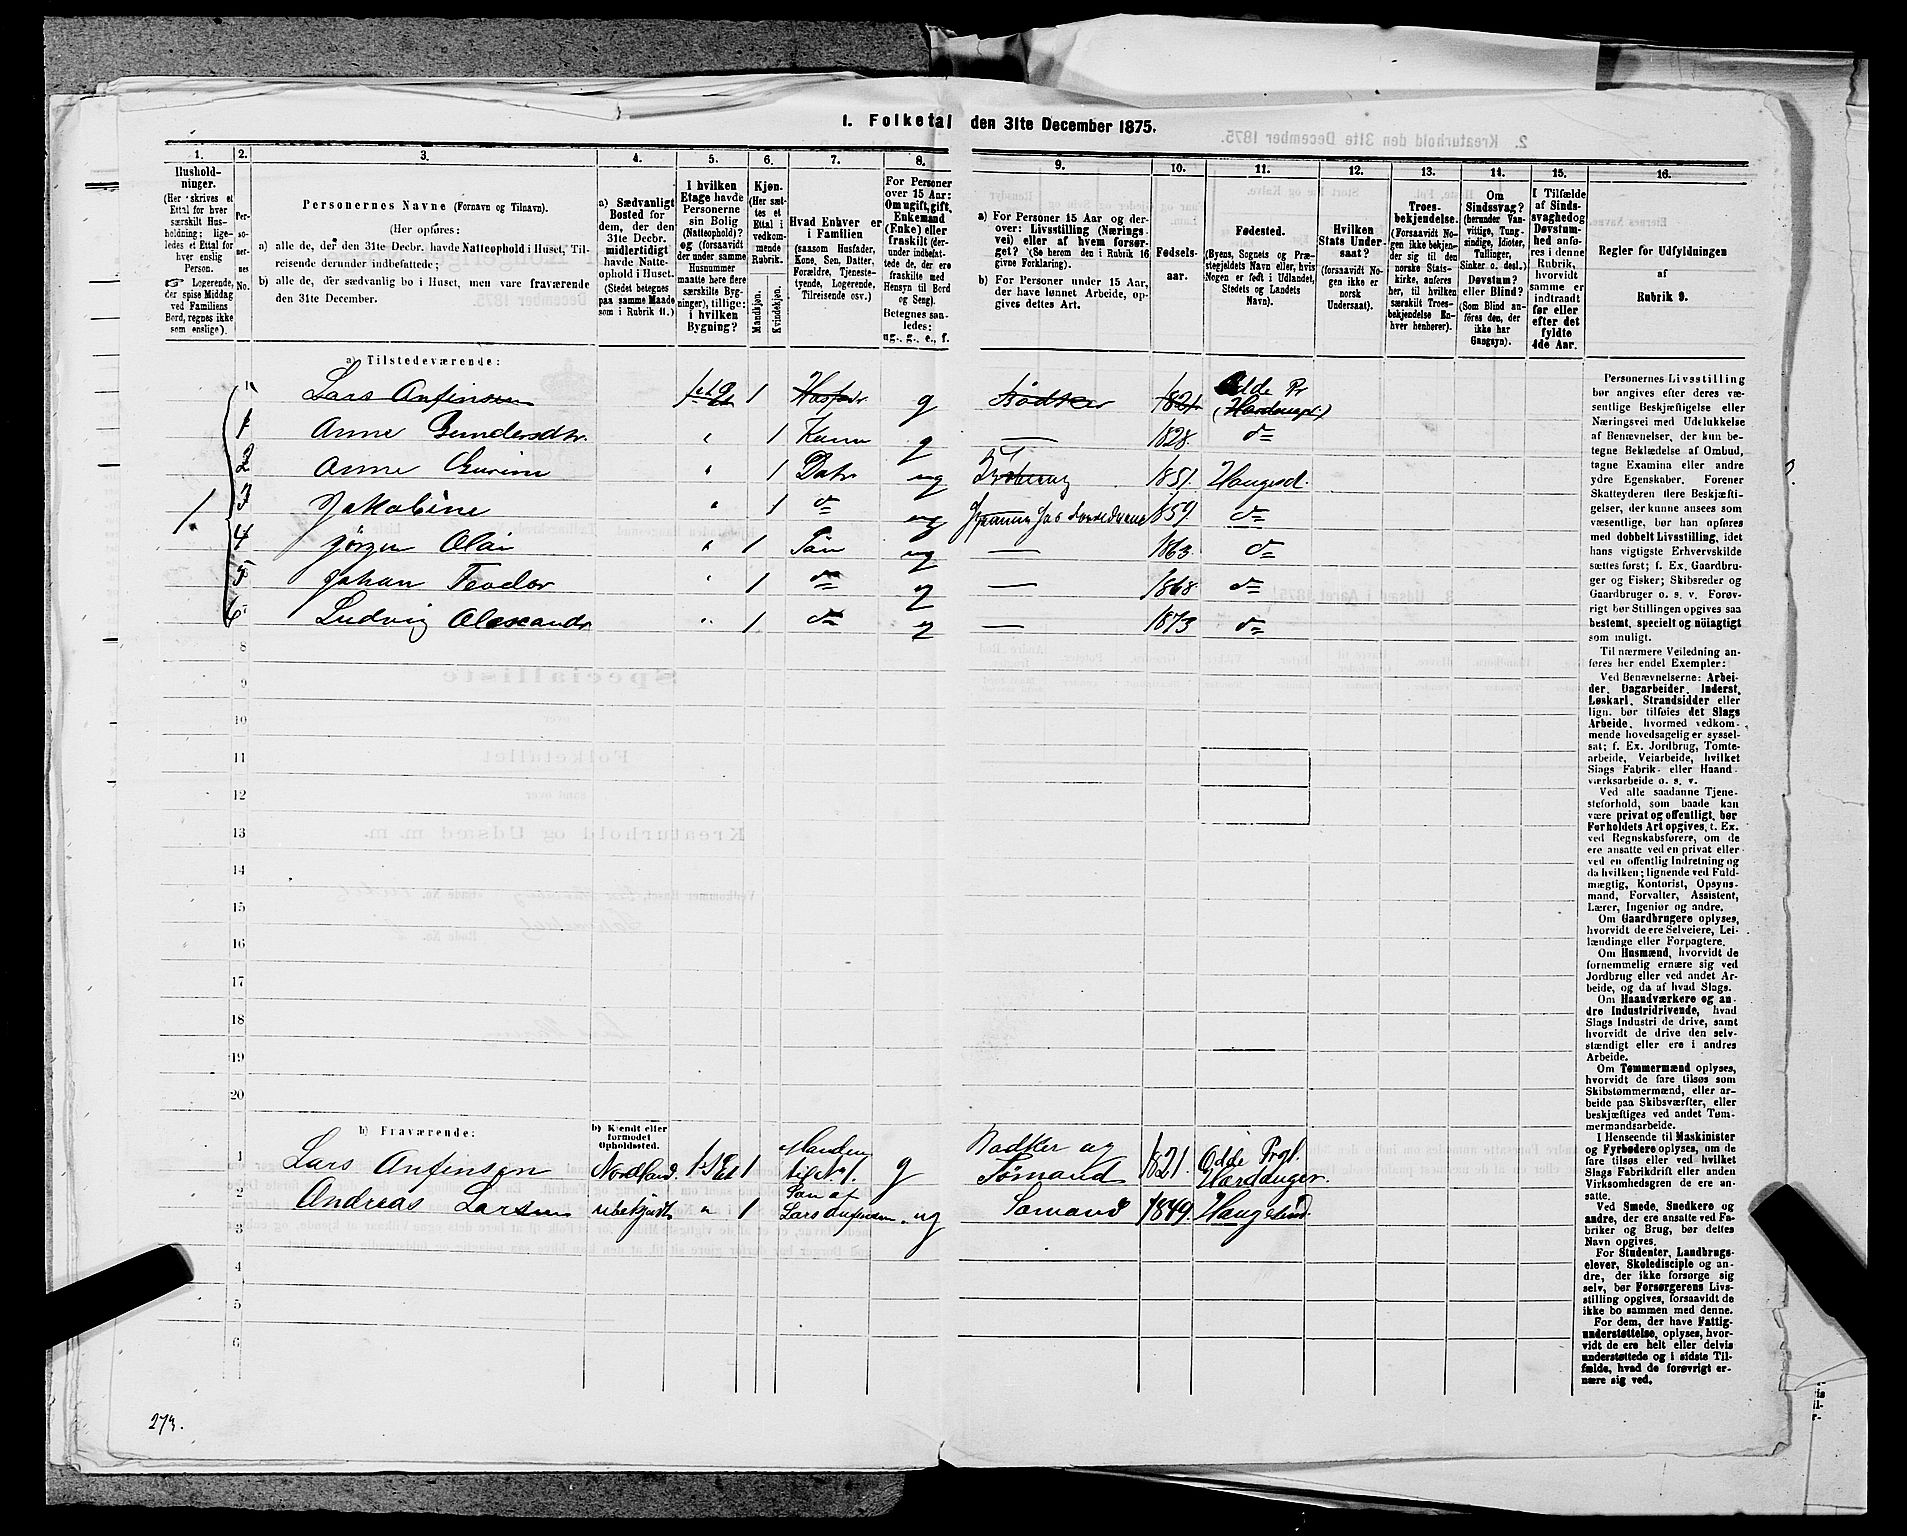 1. Folketal den 31te December 1875.
1. 2. 3. 4. 5. 6. 7. 8. 9. 10. 11. 12. 13. 14. 15. 16.
Husholdninger.
(Her skrives et
Ettal for hver
særskilt Husholdning;
ligeledes et Ettal for
hver enslig
Person.
☞ Logerende,
der spise Middag
ved Familiens
Bord, regnes ikke
som enslige).
Personernes
No.
Personernes Navne (Fornavn og Tilnavn).
(Her opføres:
a) alle de, der den 31te Decbr. havde Natteophold i Huset, Tilreisende
derunder indbefattede;
b) alle de, der sædvanlig bo i Huset, men vare fraværende
den 31te December.
a) Sædvanligt
Bosted for
dem, der den
31te Decbr.
midlertidigt
havde Natteophold
i Huset.
(Stedet betegnes
paa samme Maade
som i Rubrik 11.)
I hvilken
Etage havde
Personerne
sin Bolig
(Natteophold)?
og (forsaavidt
der under samme
Husnummer
maatte høre flere
særskilte Bygninger),
tillige:
i hvilken
Bygning?
Kjøn.
(Her sættes
et
Ettal i
vedkommende
Rubrik.
Mandkjøn.
Kvindekjøn.
Hvad Enhver er
i Familien
(saasom Husfader,
Kone, Søn, Datter,
Forældre, Tjenestetyende,
Logerende,
Tilreisende osv.)
For Personer
over 15 Aar:
Om ugift, gift,
Enkemand
(Enke) eller
fraskilt (derunder
indbefattede
de, der ere
fraskilte med
Hensyn til Bord
og Seng).
Betegnes saaledes:
ug., g., e., f.
a) For Personer 15 Aar og derover:
Livsstilling (Næringsvei)
eller af hvem forsørget?
(Se herom den i Rubrik 16
givne Forklaring).
b) For Personer under 15 Aar,
der have lønnet Arbeide, opgives
dettes Art.
Fødselsaar.
Fødested.
(Byens, Sognets og Præstegjeldets
Navn eller, hvis
Nogen er født i Udlandet,
Stedets og Landets
Navn).
Hvilken
Stats Undersaat?
(forsaavidt Nogen
ikke er
norsk
Undersaat).
Troesbekjendelse.
(Forsaavidt Nogen
ikke bekjender
sig til den
norske Statskirke,
anføres
her, til hvilken
særskilt Troesbekjendelse
Enhver
henhører).
Om
Sindssvag?
(herunder Vanvittige,
Tungsindige,
Idioter,
Tullinger,
Sinker o. desl.)
Døvstum?
eller Blind?
(Som Blind anføres
den, der
ikke har
Gangsyn).
I Tilfælde
af Sindssvaghed
og
Døvstumhed
anføres
i denne
Rubrik,
hvorvidt
samme er
indtraadt
før eller
efter det
fyldte
4de Aar.
Regler for Udfyldningen
af
Rubrik 9.
a) Tilstedeværende:
Lars Anfinsen 1 g Bødker 1821 Odde Pr
1 Anne Gundersdtr. " 1 Kone g — 1828.
2 Anne Gurine " 1 Datr ug 1851. Haugesd.
1 3 Jakobine " 1 d= ug 1859 d=
4 Jørgen Olai " 1 Søn ug — 1863. d=
5 Johan Teodor " 1 d= — 1868. d=
6 Ludvig Alexander " 1 d= — 1873 d=
8
9
10
11
12
13
14
15
16
17
18
19
20
b) Fraværende:
b) Kjendt eller
formodet
Opholdssted.
1 Lars Anfinsen Nordland. 1 Manden til No 1. g Bødker og Sømand 1821. Odde Prgl. Hardanger.
2 Andreas Larsen ubekjendt " 1 Søn af Lars Anfinsen. ug Sømand 1849. Haugesund.
3
4
5
6
273.
Personernes Livsstilling
bør angives efter deres væsentlige
Beskjæftigelse eller
Næringsvei med Udelukkelse
af Benævnelser, der kun betegne
Beklædelse af Ombud,
tagne Examina eller andre
ydre Egenskaber. Forener
Skatteyderen flere Beskjæftigelser,
der kunne ansees som
væsentlige, bør han opføres
med dobbelt Livsstilling, idet
hans vigtigste Erhvervskilde
sættes først; f. Ex. Gaardbruger
og Fisker; Skibsreder og
Gaardbruger o. s. v. Forøvrigt
bør Stillingen opgives saa
bestemt, specielt og nøiagtigt
som muligt.
Til nærmere Veiledning anføres
her endel Exempler:
Ved Benævnelserne: Arbeider,
Dagarbeider, Inderst,
Løskarl, Strandsidder eller
lign. bør tilføies det Slags
Arbeide, hvormed vedkommende
hovedsagelig er sysselsat;
f. Ex. Jordbrug, Tomtearbeide,
Veiarbeide, hvilket
Slags Fabrik- eller Haandværksarbeide
o. s. v.
Ved alle saadanne Tjenesteforhold,
som baade kan
være privat og offentligt, bør
Forholdets Art opgives, t. Ex.
ved Regnskabsførere, om de
ere ansatte ved en privat eller
ved en offentlig Indretning og
da hvilken; lignende ved Fuldmægtig,
Kontorist, Opsynsmand,
Forvalter, Assistent,
Lærer, Ingeniør og andre.
Om Gaardbrugere oplyses,
hvorvidt de ere Selveiere, Leilændinge
eller Forpagtere.
Om Husmænd, hvorvidt de
fornemmelig ernære sig ved
Jordbrug eller ved andet Arbeide,
og da af hvad Slags.
Om Haandværkere og andre
Industridrivende, hvad
Slags Industri de drive, samt
hvorvidt de drive den selvstændigt
eller ere i andres
Arbeide.
Om Tømmermænd oplyses,
hvorvidt de fare tilsøs som
Skibstømmermænd, eller arbeide
paa Skibsværfter, eller
beskjæftiges ved andet Tømmermandsarbeide.
I Henseende til Maskinister
og Fyrbødere oplyses, om de
fare tilsøs eller ved hvilket
Slags Fabrikdrift eller anden
Virksomhedsgren de ere ansatte.
Ved Smede, Snedkere og
andre, der ere ansatte ved Fabriker
og Brug, bør dettes
Navn opgives.
For Studenter, Landbrugselever,
Skoledisciple og andre,
der ikke forsørge sig
selv, bør Forsørgerens Livsstilling
opgives, forsaavidt de
ikke bo sammen med denne.
For dem, der have Fattigunderstøttelse,
oplyses, hvorvidt
de ere helt eller delvis
understøttede og i sidste Tilfælde,
hvad de forøvrigt ernære
sig ved.